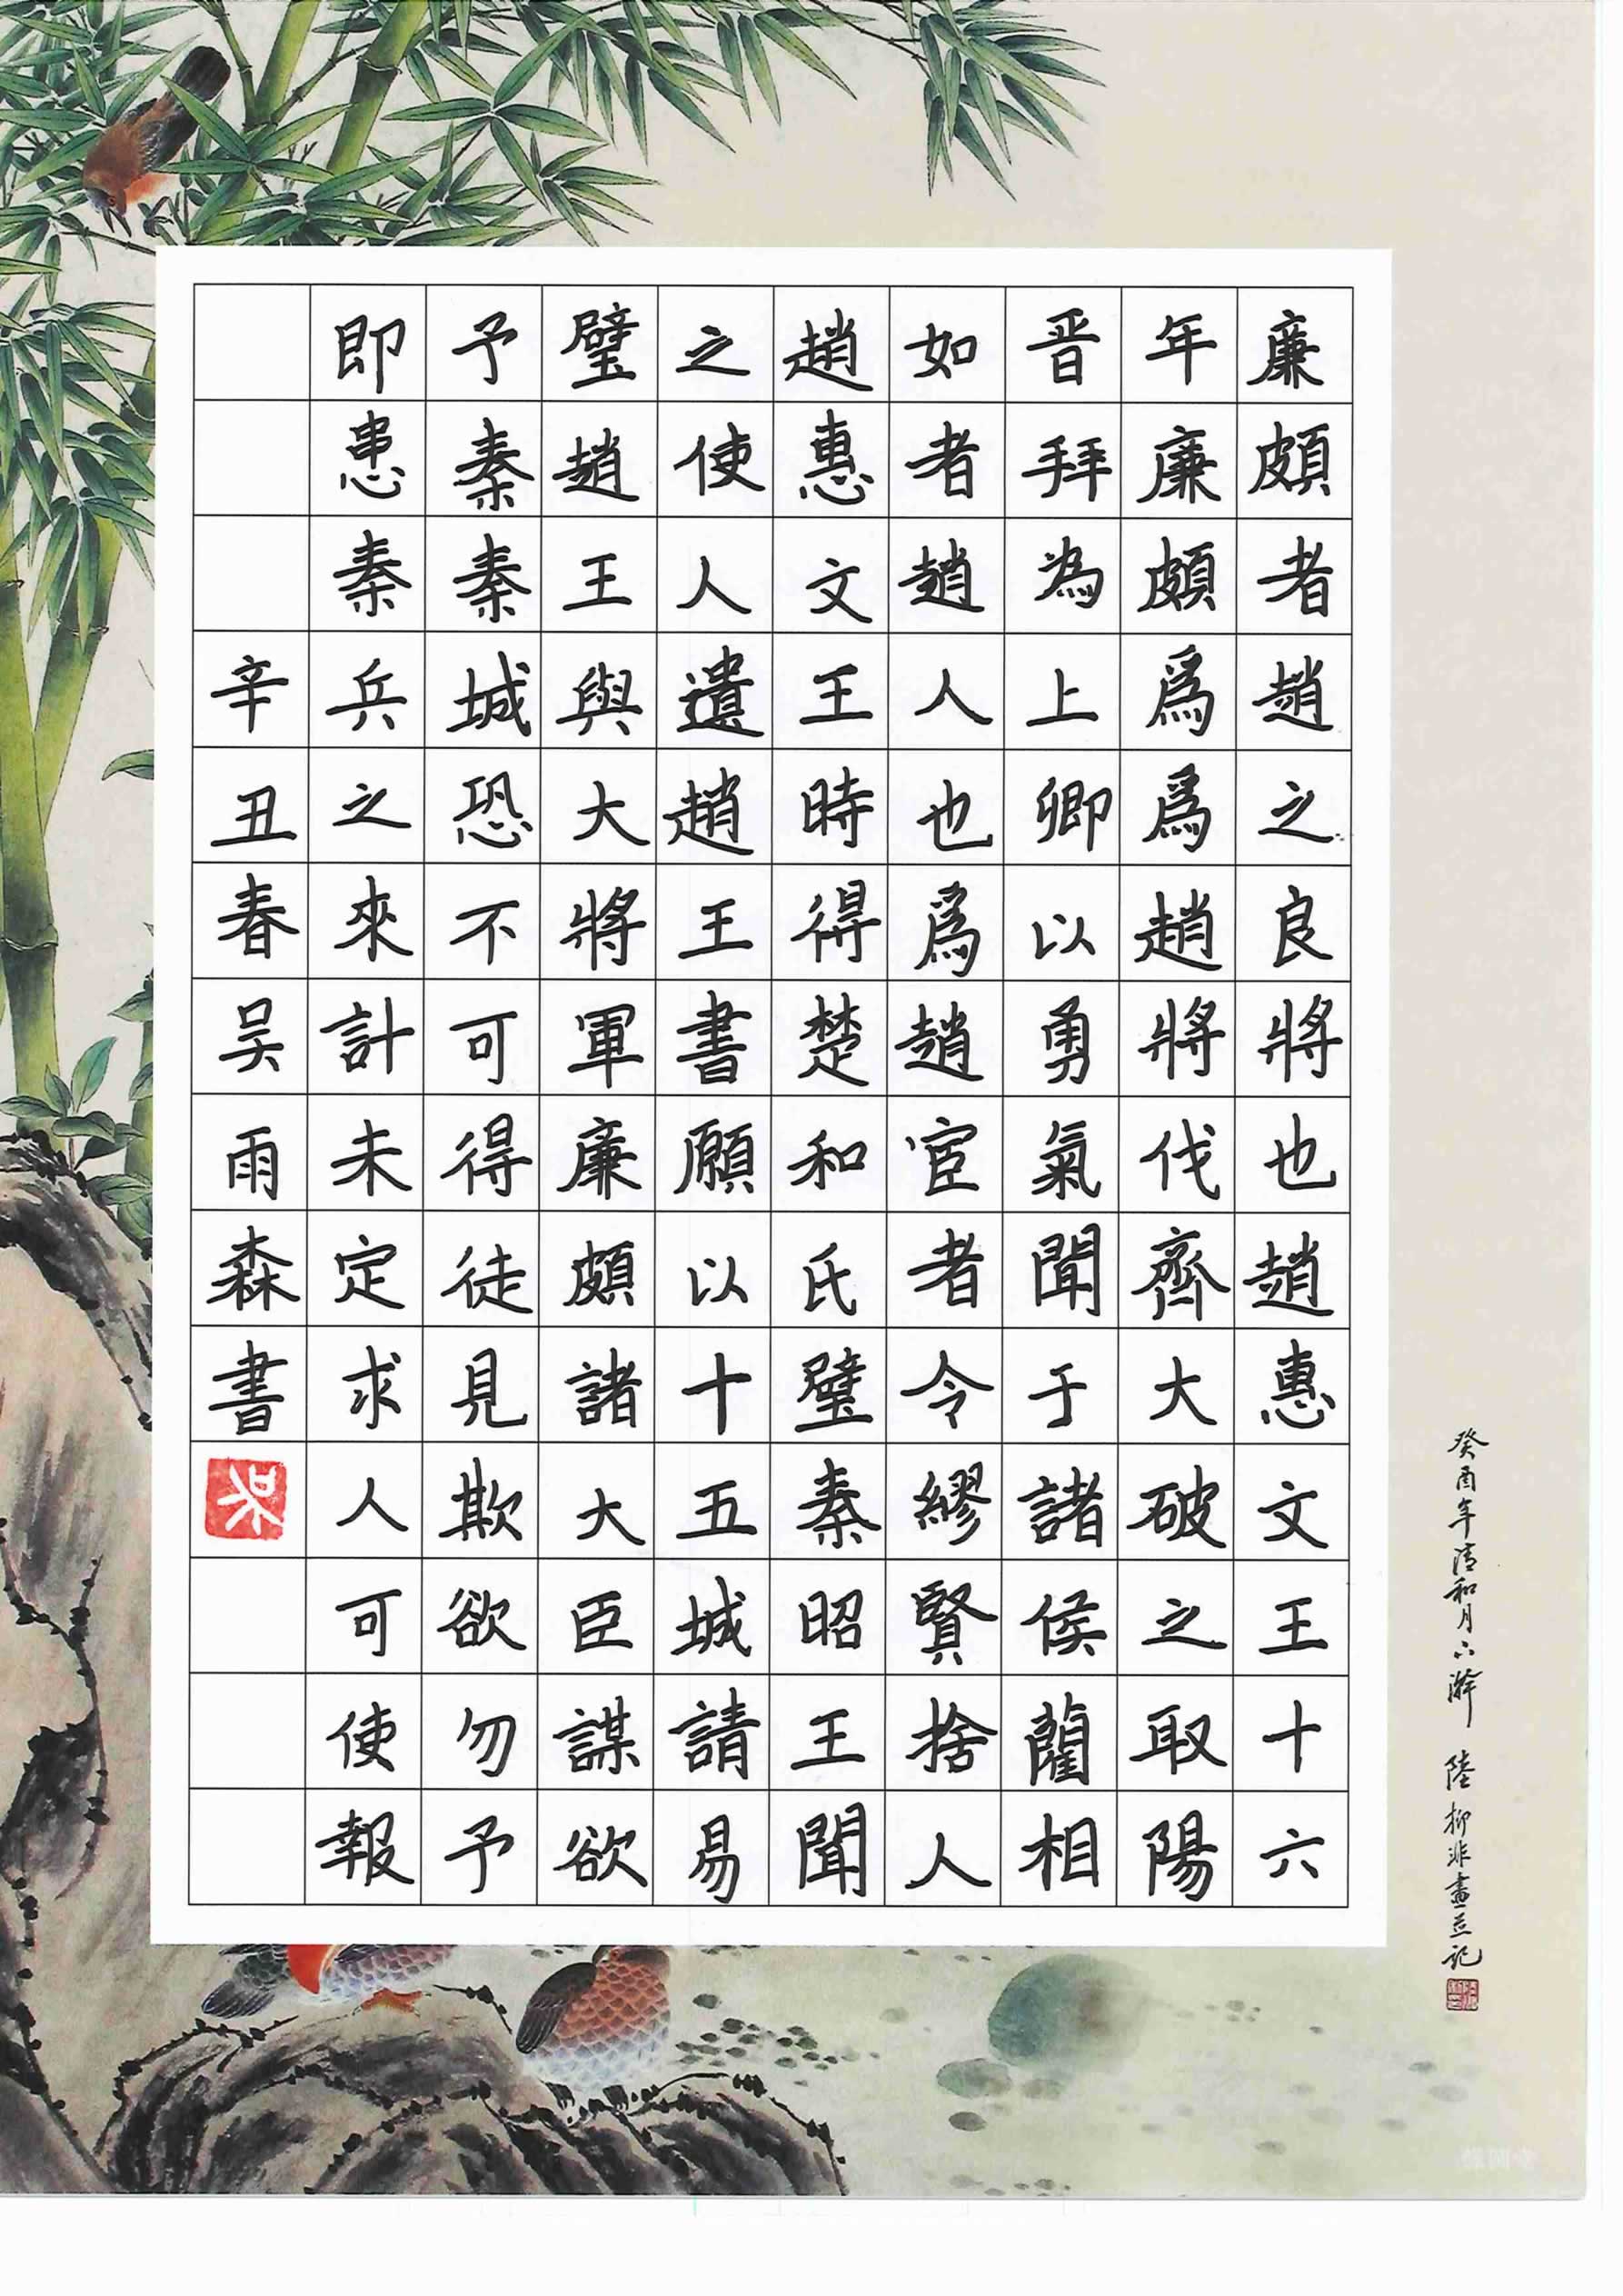 廉頗者趙之良將也趙惠文王十六
年廉頗爲爲趙將伐齊大破之取陽
晋拜為上卿以勇氣聞于諸侯藺相
如者趙人也爲趙宦者令繆賢捨人
趙惠文王時得楚和氏璧秦昭王聞
之使人遺趙王書願以十五城請易
璧趙王與大將軍廉頗諸大臣謀欲
予秦秦城恐不可得徒見欺欲勿予
即患秦兵之來計未定求人可使報
辛丑春吴雨森書
癸酉年清和月六澣 陸抑非畫並記